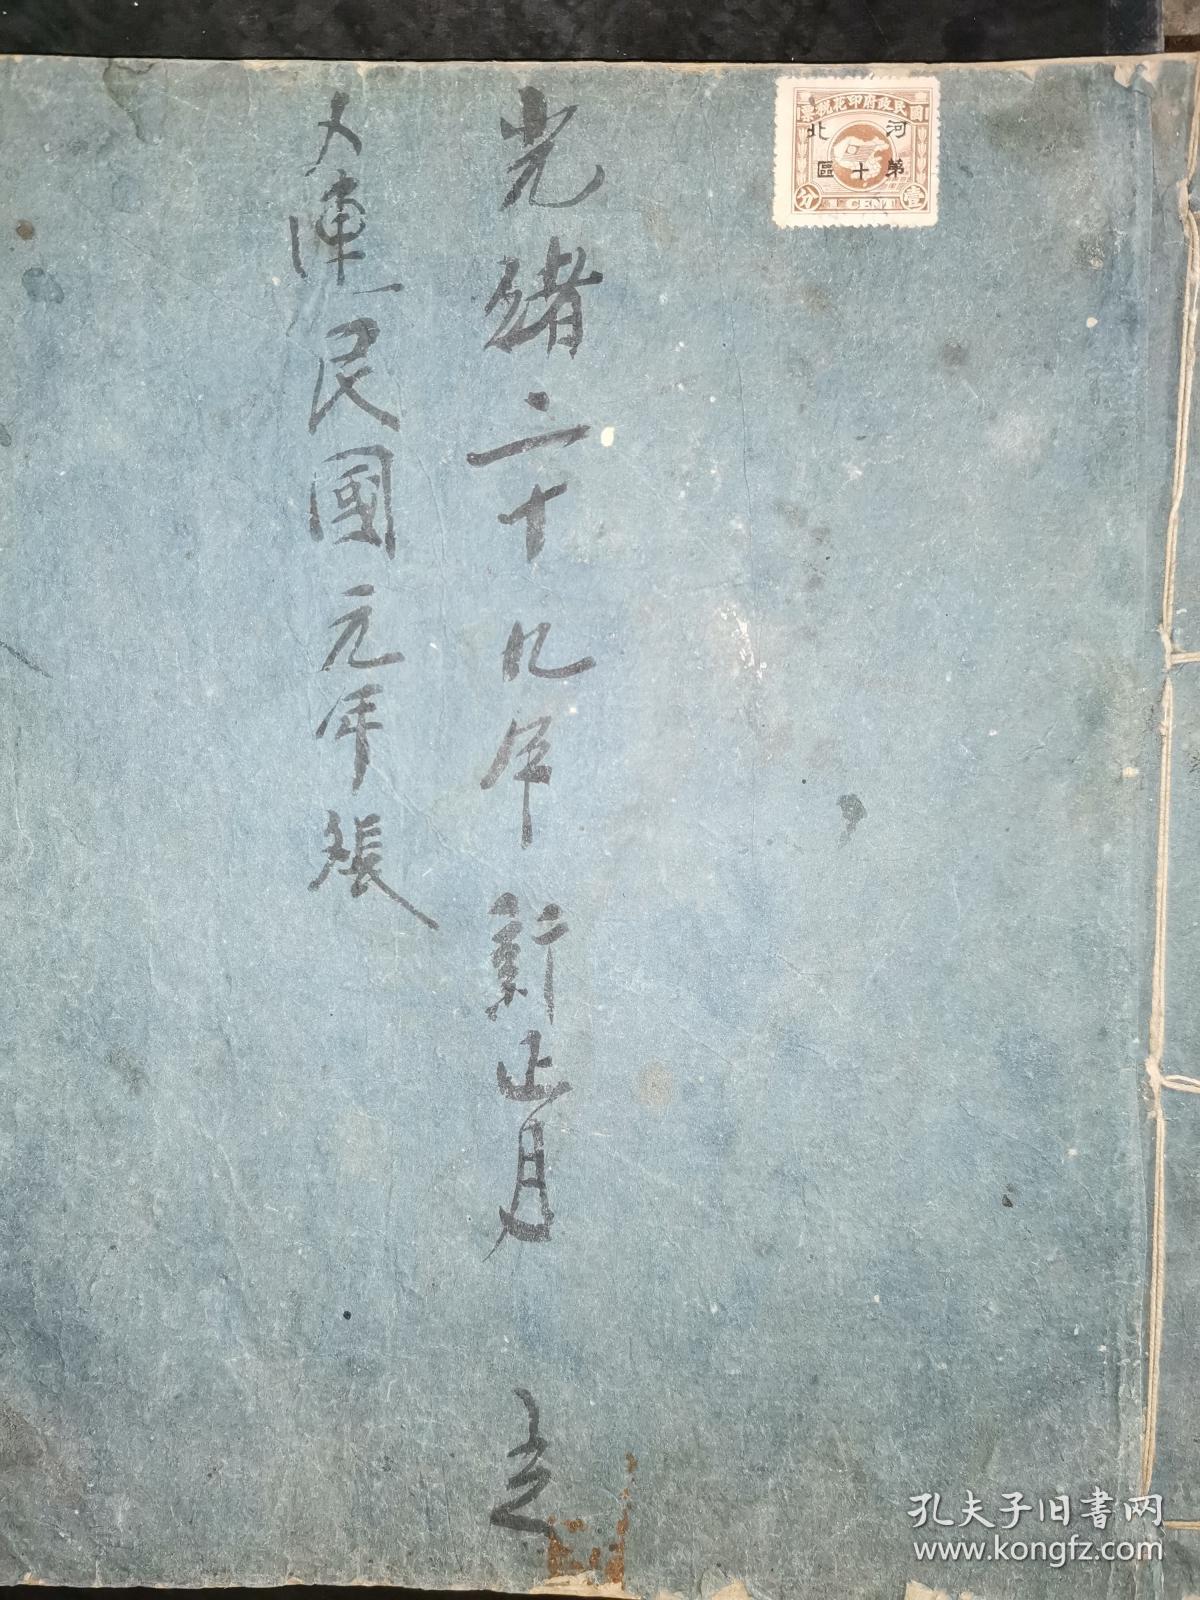 國民政府印花稅票
河北
第十區
壹分
1 CENT
光緒二十九年新正月 立
民國元年張
孔夫子旧书网
www.kongfz.com